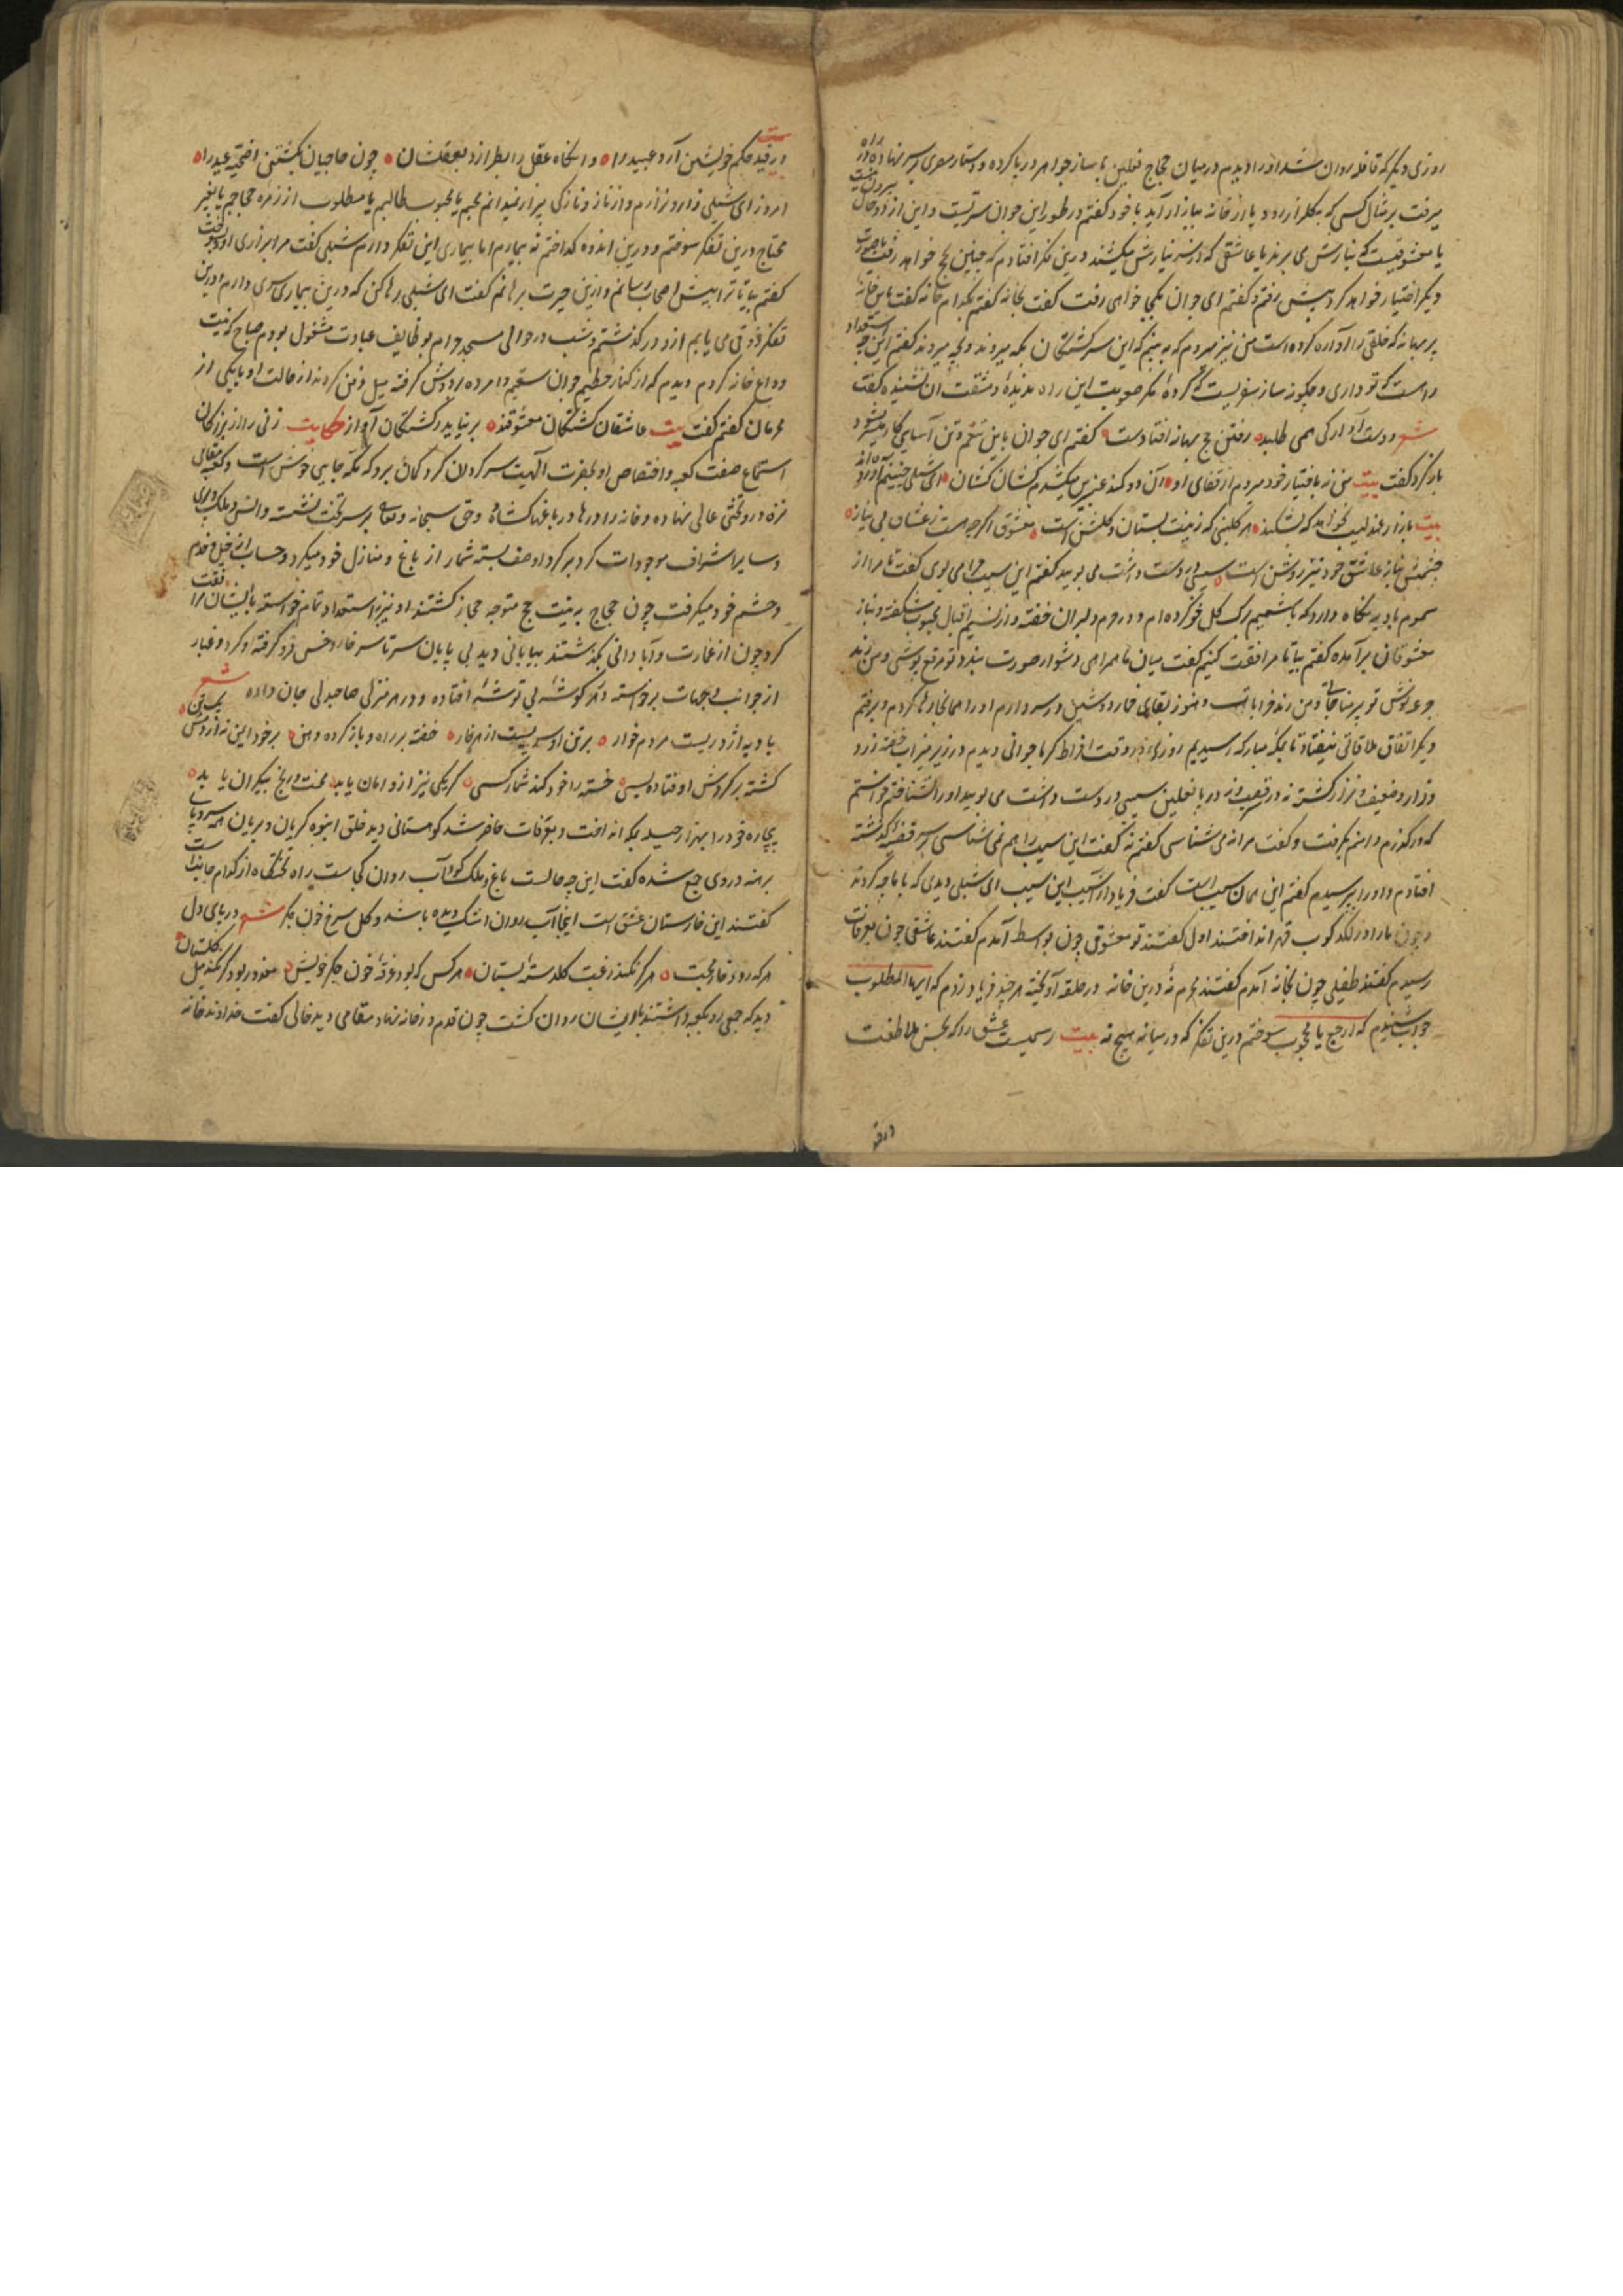 روزی دیگر که قافله روان شد او را دیدم در میان حجاج نعلین با ساز جواهر در پا کرده و دستار مصری بر سر نهاده در راه
میرفت بر مثال کسی که بگلزار رود یا از خانه ببازار آید با خود گفتم در طور این جوان سریست و این از دو حال بیرون نیست
یا معشوقیست که بنازش می برند یا عاشقی که از سر نیازش میکشند درین فکر افتادم که چنین حج خواهد رفت یا صورت
دیگر اختیار خواهد کرد پیش رفتم و گفتم ای جوان بکجا خواهی رفت گفت بخانه گفتم بکدام خانه گفت باین خانه
پر بهانه که خلقی را آواره کرده است من نیز میروم که به بینم که این سرگشتگان بکه میروند و بچه میروند گفتم این چه استعداد
راهست که تو داری و چگونه ساز سفریست که کرده مگر صعوبت این راه ندیدهٔ و مشقت آن نشنیده گفت
شعر دوست آوارگی همی طلبد رفتن حج بهانه افتادست گفتم ای جوان باین تنعم و تن آسایی کار میسر نشود
باز کرد گفت بیت من نه باختیار خود میروم از قفای او آن دو کمند عنبرین میکشدم کشان کشان ای شبلی
بیت بازار عندلیب نخواهد که بشکند هر گلبنی که زینت بستان و گلشن است معشوق اگرچه هست ز عشاق بی نیاز
چشمش بناز عاشق خود نیز روشن است سیبی در دست داشت می بویید گفتم این سیب چرا می بوی گفت تا مرا از
سموم بادیه نگاه دارد که با شمیم برگ گل خو کرده ام و در حرم دلبران خفته و از نسیم اقبال محبوب شکفته و بناز
معشوقان برآمده گفتم بیا تا مرافقت کنیم گفت میان ما همراهی دشوار صورت بندد تو مرقع پوشی و من رند
جرعه نوش تو پیر مناجاتی و من رند خراباتی و هنوز بقایای خمار دوشین در سر دارم او را همانجا رها کردم و برفتم
دیگر اتفاق ملاقاتی نیفتاد تا بمکه مبارکه رسیدیم روزی در وقت افراط گرما جوانی دیدم در زیر میزاب خفته زرد
و زار و ضعیف و نزار گشته نه در پا نعلین سیبی در دست داشت می بویید او را شناختم خواستم
که درگذرم دامنم بگرفت و گفت مرا نه می شناسی گفتم نه گفت این سیب را هم نمی شناسی
افتادم و او را پرسیدم گفتم این همان سیب است گفت فریاد از آسیب این سیب ای شبلی دیدی که با ما چه کردند
و چون ما را در لگدکوب قهر انداختند اول گفتند تو معشوقی چون بواسط آمدم گفتند عاشقی چون بعرفات
رسیدم گفتند طفیلی چون بخانه آمدم گفتند محرم نهٔ درین خانه در حلقه آویخته هر چند فریاد زدم که ایها المطلوب
جواب شنیدم که ارجع یا محجوب سوختم درین تفکر که در میانه هیچ نه بیت رسمیست عشق را که بحسن ملاطفت
در قید
در قید حکم خویشتن آرد عبید را و انگاه عقل رابط از دید عقلشان چون حاجیان بکشتن اضحیه عید را
امروز ای شبلی زار و نزارم و از ناز و نازکی بیزار نمیدانم محبم یا محبوب طالبم یا مطلوب از زمره حجاجم یا بغیر
محتاج درین تفکر سوختم و درین اندوه گداختم نه بیمارم اما بیماری این تفکر دارم شبلی گفت مرا بر زاری او دل بسوخت
گفتم بیا تا ترا پیش اصحاب رسانم و ازین حیرت برهانم گفت ای شبلی رها کن که درین بیماری سری دارم و درین
تفکر ذوقی می یابم ازو درگذشتم و شب در حوالی مسجد حرام بوظایف عبادت مشغول بودم صباح که نیت
وداع خانه کردم دیدم که از کنار حطیم جوان سقیم را مرده بر دوش گرفته میل دفن کردند از حالت او با یکی از
محرمان گفتم گفت بیت عاشقان کشتگان معشوقند بر نیاید ز کشتگان آواز حکایت زنی را از بزرگان
استماع صفت کعبه و اختصاص او بحضرت الهیت سرگردان کرد گمان برد که مکه جایی خوش است و کعبه
منزه درو تختی عالی نهاده و خانه را درها در باغها گشاده و حق سبحانه و تعالی بر سر تخت نشسته و انس و ملک و پری
و سایر اشراف موجودات گرد بر گرد او صف بسته شمار از باغ و منازل خود میکرد و حساب از خیل و خدم
و حشم خود میگرفت چون حجاج به نیت حج متوجه حجاز گشتند او نیز استعداد تمام خواسته با ایشان مرافقت
کرد چون از عمارت و آبادانی بگذشتند بیابانی دید بی پایان سر تا سر خار و خس فرو گرفته و گرد و غبار
از جوانب و جهات برخاسته در هر گوشه بی توشهٔ افتاده و در هر منزلی صاحبدلی جان داده شعر
بادیه اژدریست مردم خوار بر تن او سر یست از هر خار خفته بر راه و باز کرده دهن
کشته بر گردش اوفتاده بسی خسته را خود کند شمار کسی گر یکی نیز ازو امان یابد محنت و رنج بیکران یابد
بیچاره خود را بهزار حیله بمکه انداخت و بعرفات حاضر شد کوهستانی دید خلق انبوه گریان و بریان همه سر و پا
برهنه درو جمع شده گفت این چه حالت باغ و ملک کو آب روان کجاست راه تختگاه از کدام جانب است
گفتند این خارستان عشق است اینجا آب روان اشک دیده باشد و گل سرخ خون جگر شعر در پای دل
هرکه رود خار محبت هرگز نکند رغبت گلدسته بستان هر کس که بود ذوقهٔ خون جگر خویش معذور بود گر نکند میل گلستان
دید که جمعی رو بکعبه داشتند با ایشان روان گشت چون قدم در خانه نهاد مقامی دید خالی گفت خداوند خانه